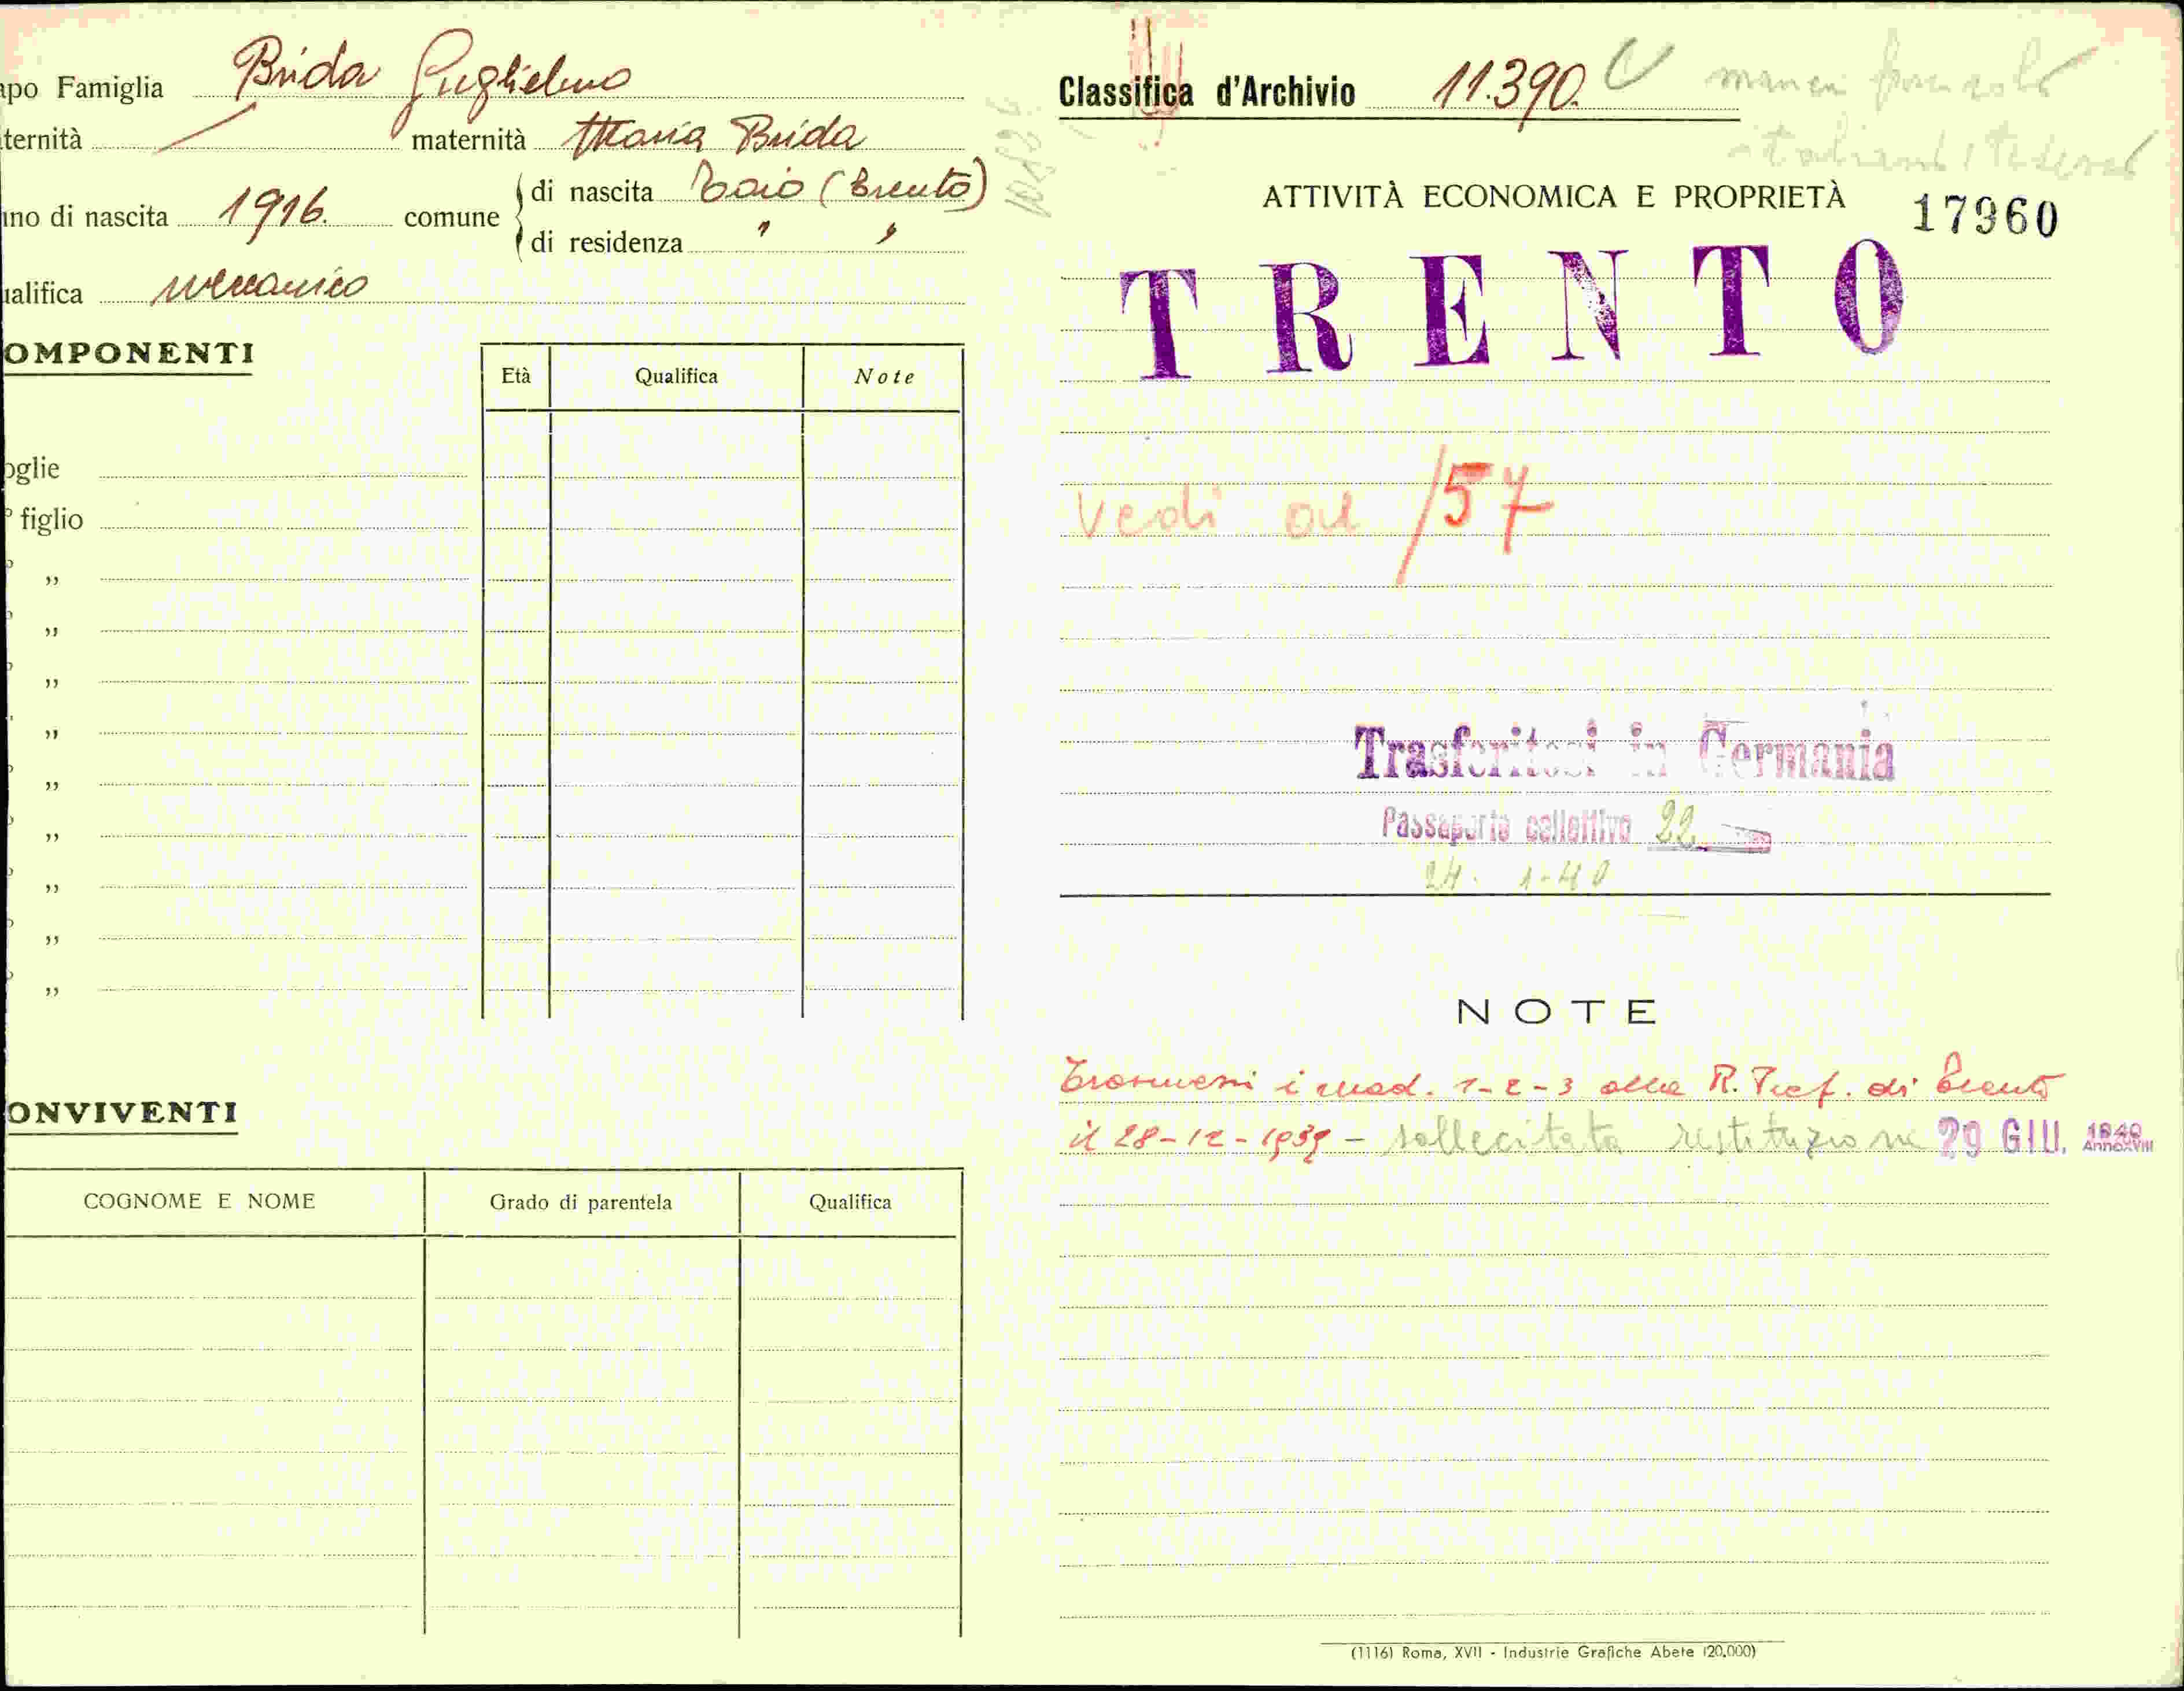 apo Famiglia Brida Guglielmo
ternità maternità Maria Brida
no di nascita 1916. comune di nascita Taio (Trento)
di residenza " "
alifica meccanico
OMPONENTI
Età Qualifica Note
oglie
° figlio
"
"
"
"
"
"
"
"
"
ONVIVENTI
COGNOME E NOME Grado di parentela Qualifica
Classifica d'Archivio 11.390.
ATTIVITÀ ECONOMICA E PROPRIETÀ
17960
TRENTO
Vedi al /57
Trasferitosi in Germania
Passaporto collettivo 22
24. 1-40
NOTE
Trasmessi i mod. 1-2-3 alla R. Pref. di Trento
il 28-12-1939 - sollecitata restituzione 29 GIU. 1940 Anno XVIII
(1116) Roma, XVII - Industrie Grafiche Abete (20.000)